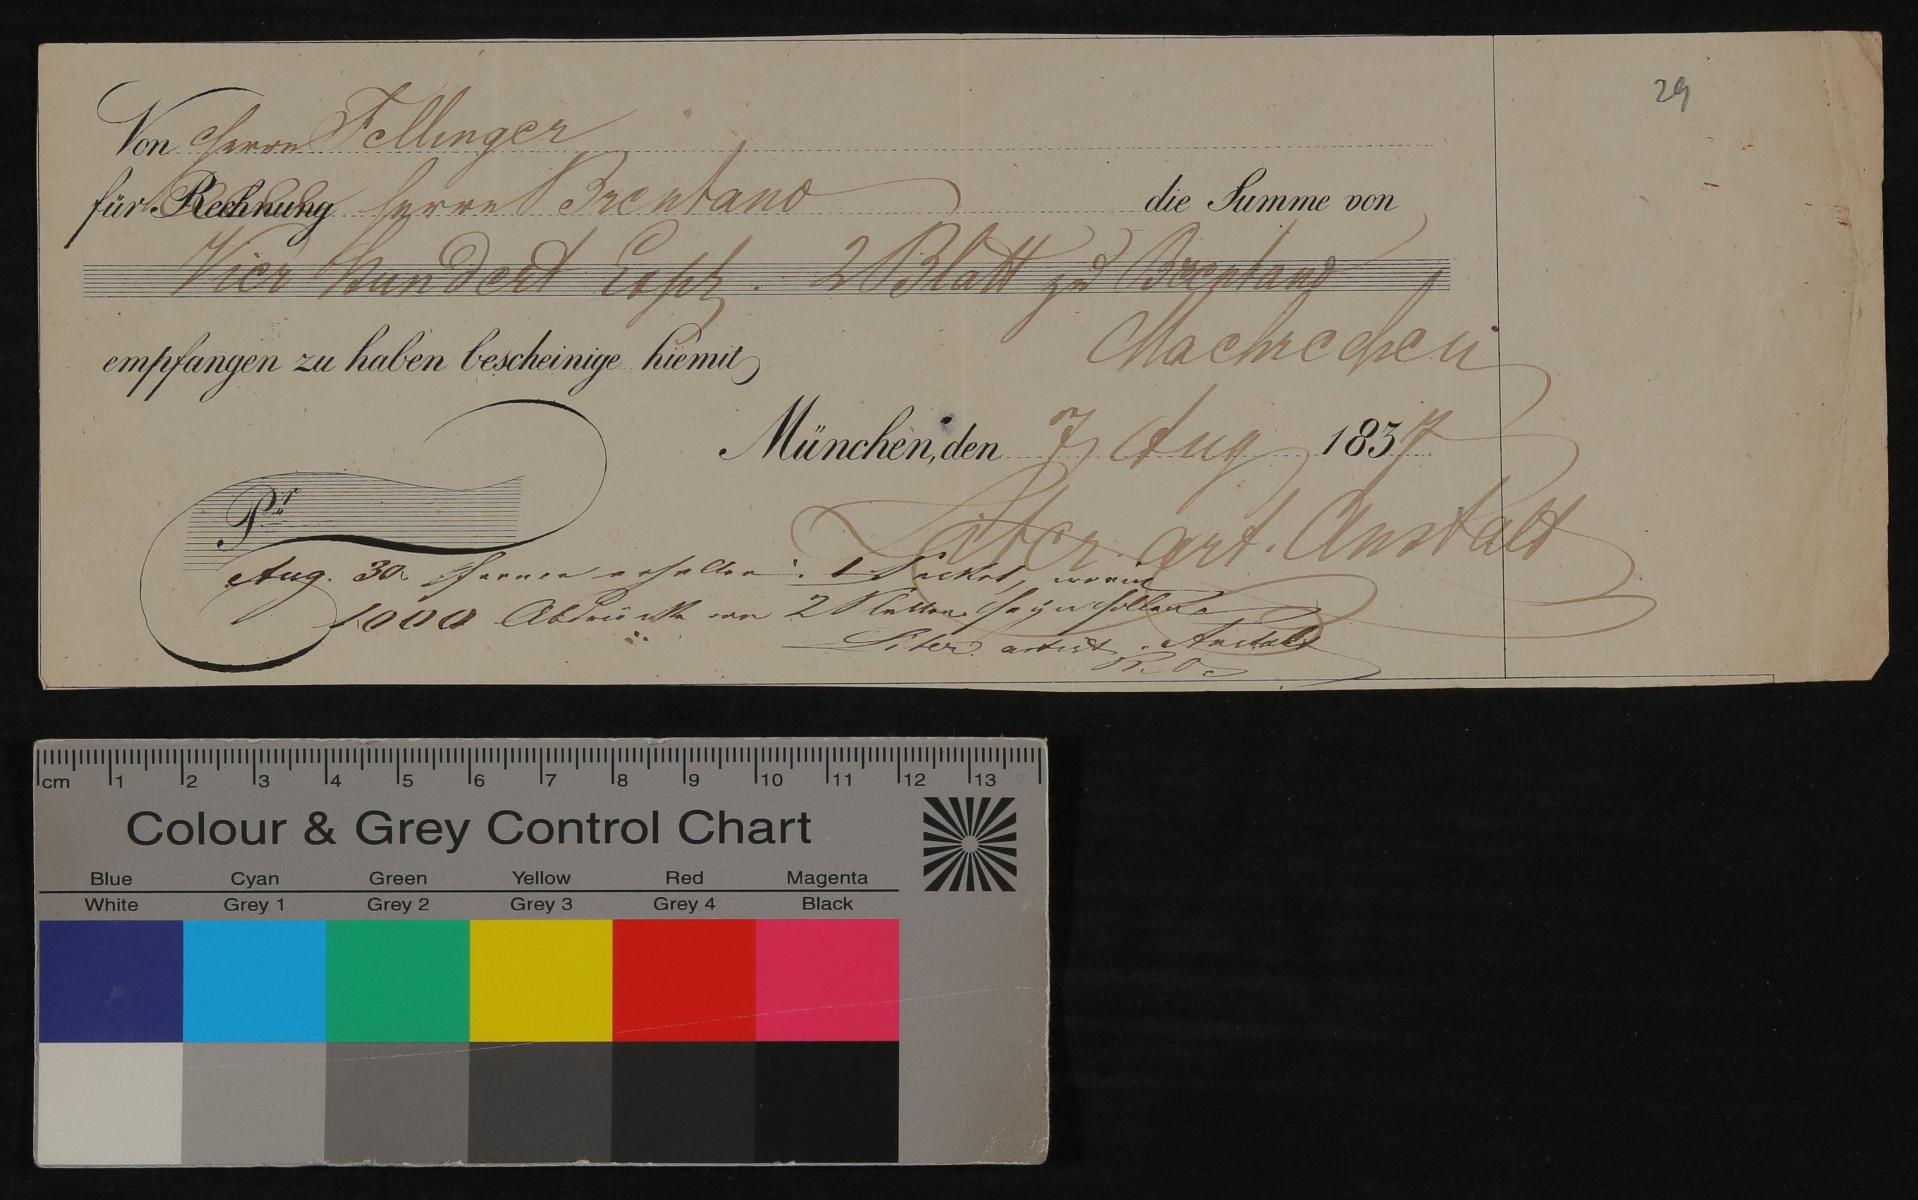 29
Von Herrn Fellinger
für Rechnung Herrn Brentano die Summe von
Vier hundert Expl. 2 Blatt zu Brentano
Maehrchen
empfangen zu haben bescheinige hiemit
München, den 7 Aug 1837
Pr
Liter. art. Anstalt
Aug. 30. Ferner erhalten: 1 Packet, worin
1000 Abdrücke von 2 Blätter
Liter. artist. Anstalt
cm 1 2 3 4 5 6 7 8 9 10 11 12 13
Colour & Grey Control Chart
Blue Cyan Green Yellow Red Magenta
White Grey 1 Grey 2 Grey 3 Grey 4 Black